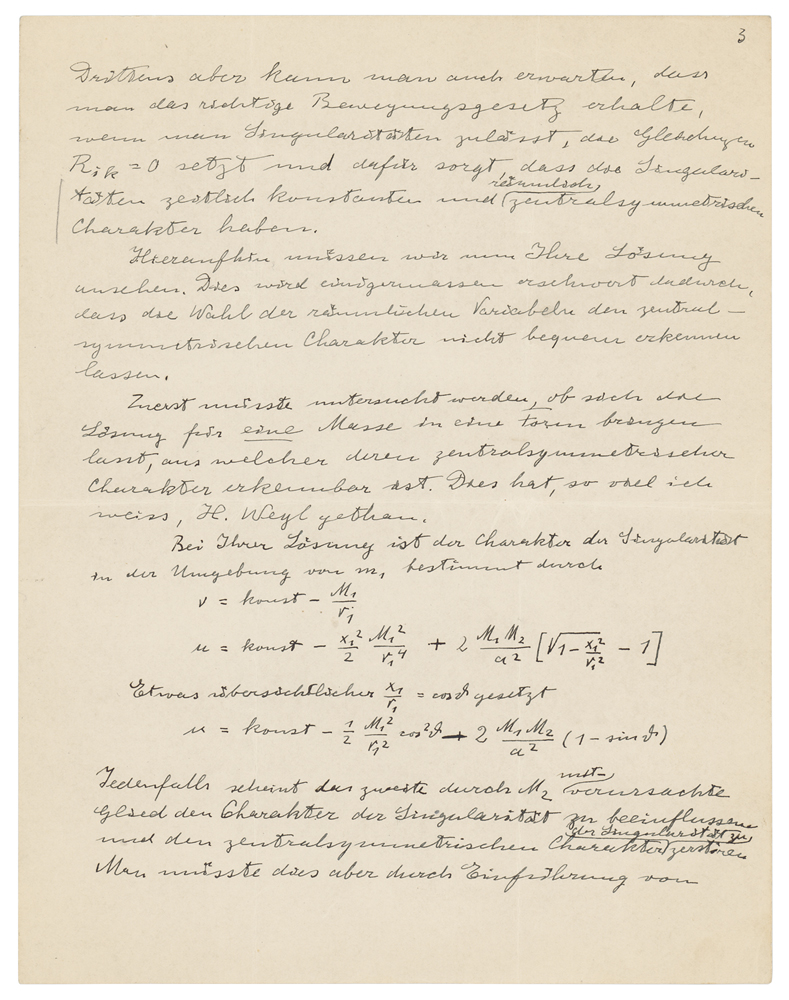 3
Drittens aber kann man auch erwarten, dass
man das richtige Bewegungsgesetz erhalte,
wenn man Singularitäten zulässt, die Gleichungen
R_{ik} = 0 setzt und dafür sorgt, dass die Singulari-
räumlich
täten zeitlich konstanten und zentralsymmetrischen
Charakter haben.
Hieraufhin müssen wir nun Ihre Lösung
ansehen. Dies wird einigermassen erschwert dadurch,
dass die Wahl der räumlichen Variabeln den zentral-
symmetrischen Charakter nicht bequem erkennen
lassen.
Zuerst müsste untersucht werden, ob sich die
Lösung für eine Masse in eine Form bringen
lasst, aus welcher deren zentralsymmetrischer
Charakter erkennbar ist. Dies hat, so viel ich
weiss, H. Weyl gethan.
Bei Ihrer Lösung ist der Charakter der Singularität
in der Umgebung von m₁ bestimmt durch
ν = konst − M₁/r₁
u = konst − x₁²/2 M₁²/r₁⁴ + 2 M₁M₂/a² [√(1 − x₁²/r₁²) − 1]
Etwas übersichtlicher x₁/r₁ = cos ϑ gesetzt
u = konst − 1/2 M₁²/r₁² cos²ϑ − 2 M₁M₂/a² (1 − sin ϑ)
Jedenfalls scheint das zweite durch M₂ mit-verursachte
Glied den Charakter der Singularität zu beeinflussen
der Singularität zu
und den zentralsymmetrischen Charakter zerstören
Man müsste dies aber durch Einführung von